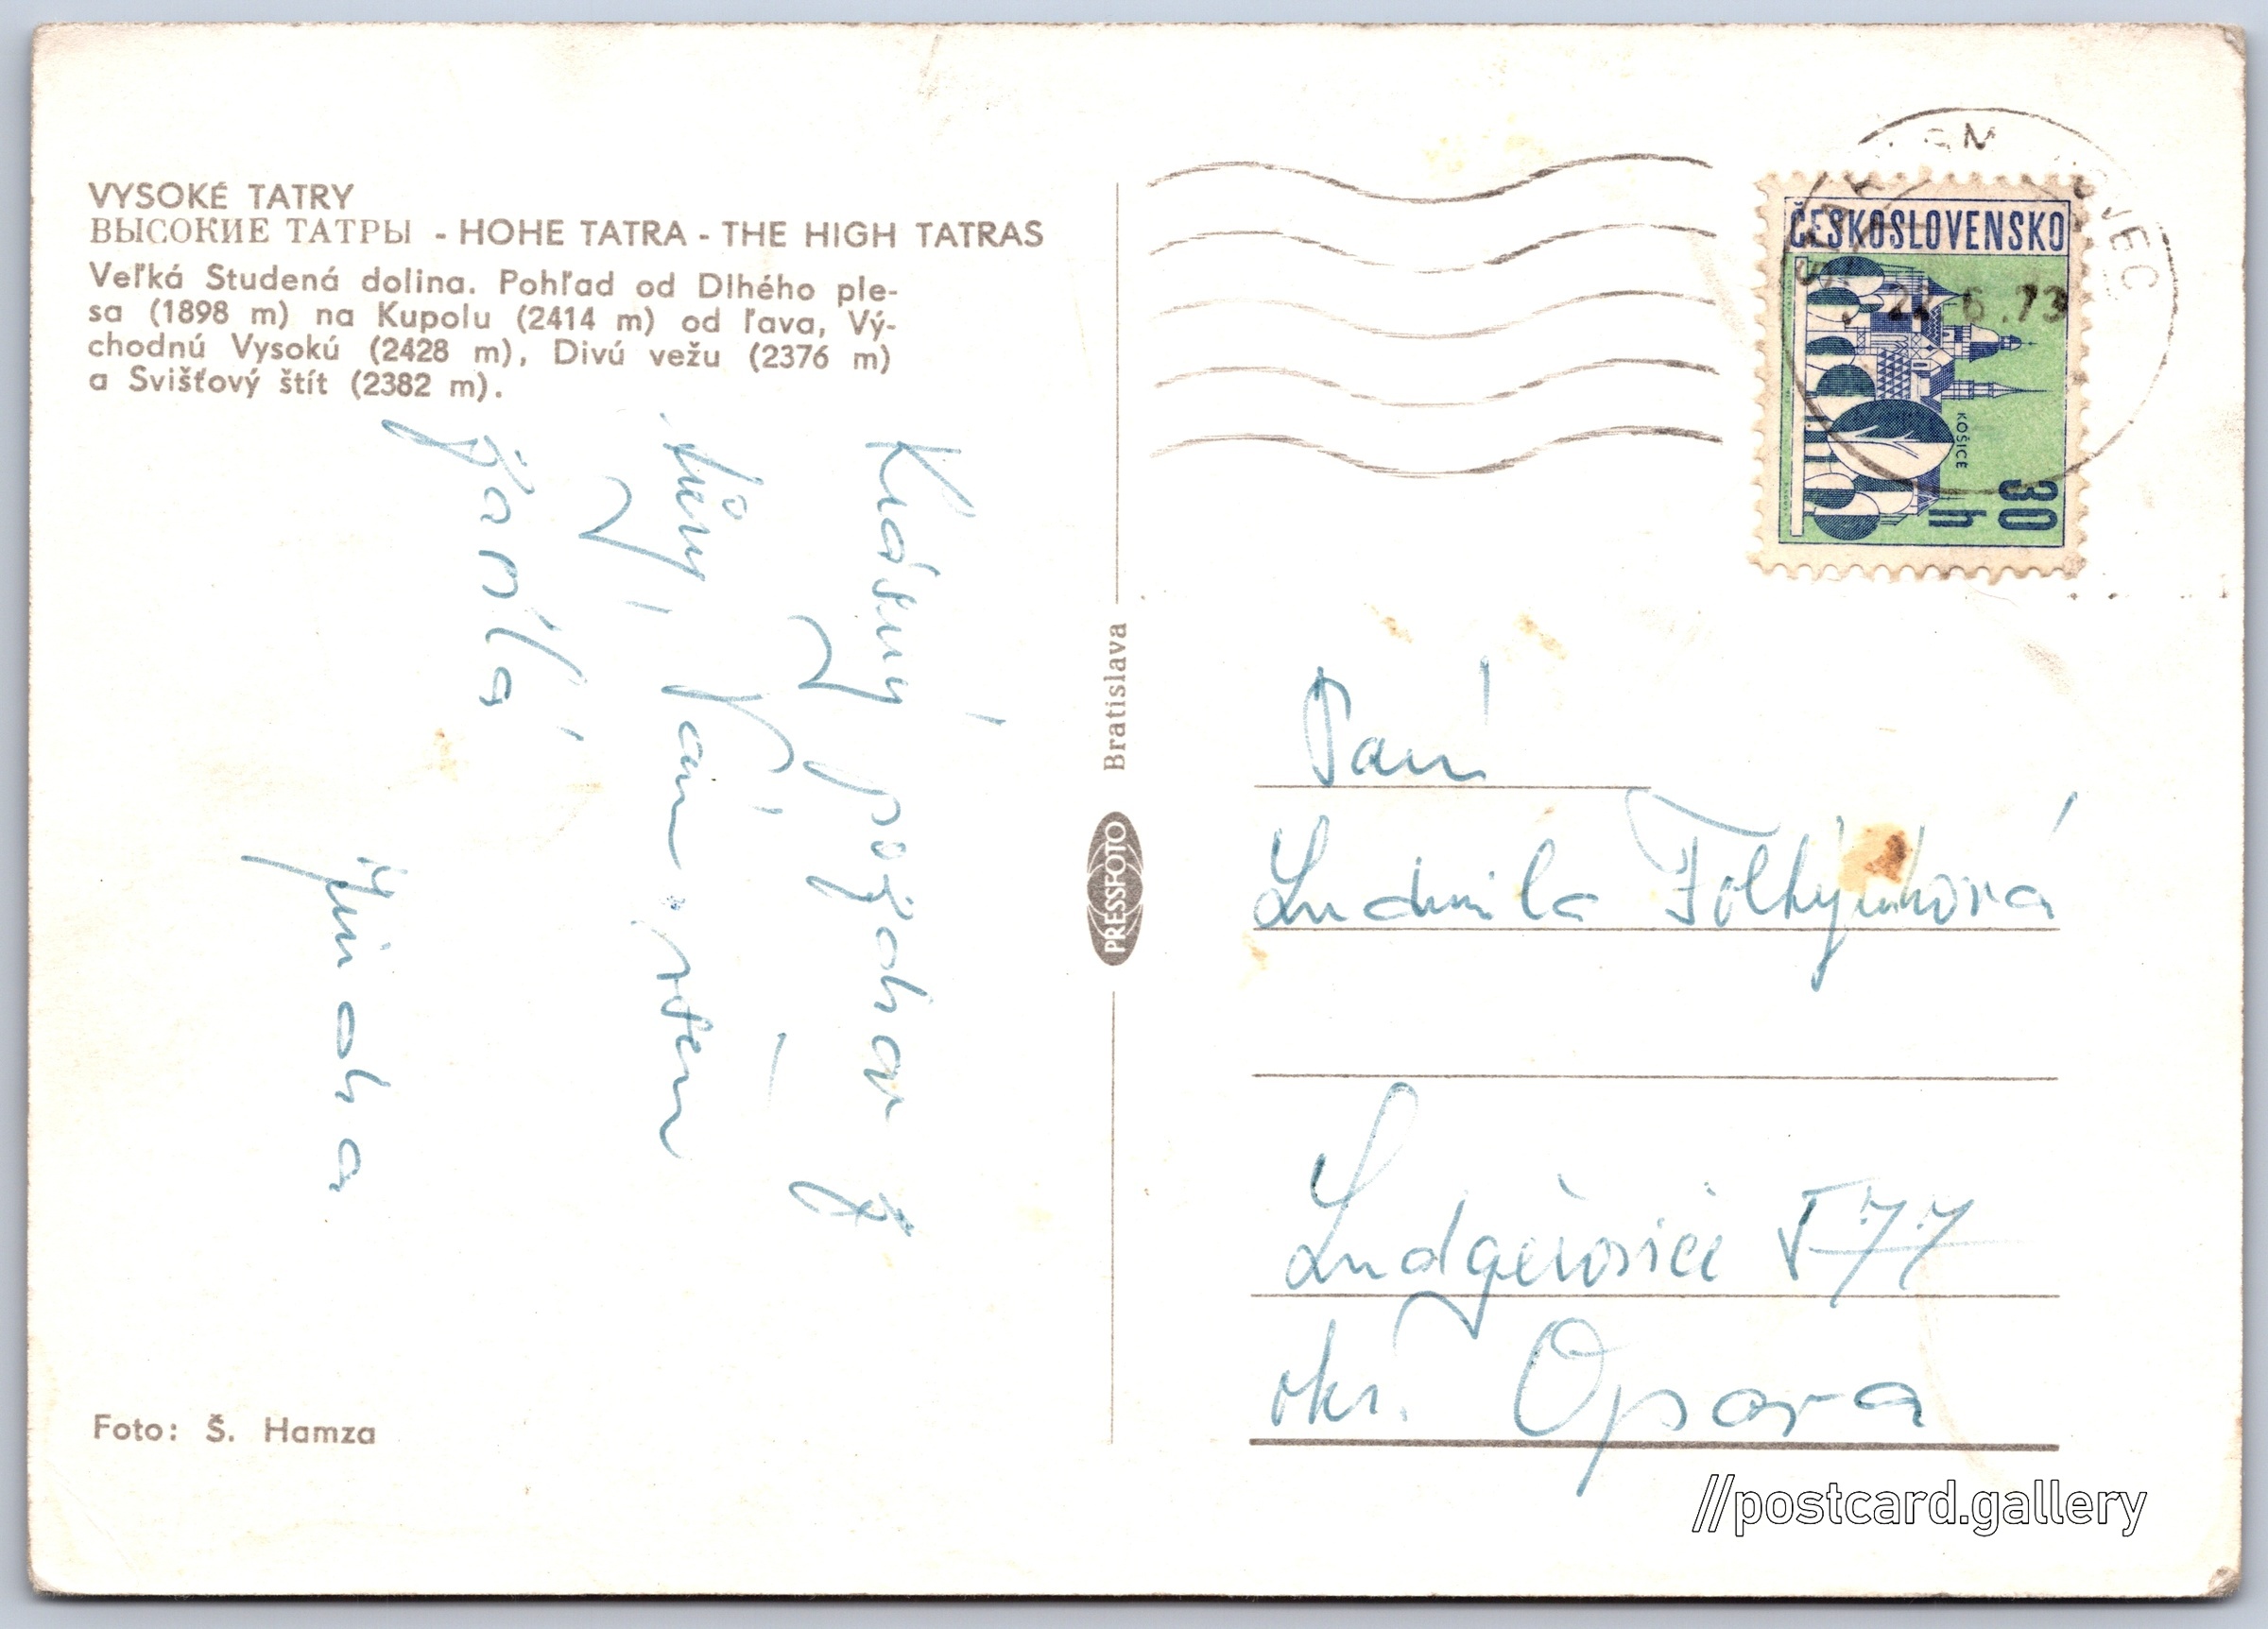 VYSOKÉ TATRY
ВЫСОКИЕ ТАТРЫ - HOHE TATRA - THE HIGH TATRAS
Veľká Studená dolina. Pohľad od Dlhého ple-
sa (1898 m) na Kupolu (2414 m) od ľava, Vý-
chodnú Vysokú (2428 m), Divú vežu (2376 m)
a Svišťový štít (2382 m).
Krásný pozdrav z
Vám všem
Jarka
Foto: Š. Hamza
Bratislava
PRESSFOTO
ČESKOSLOVENSKO
6.73
KOŠICE
30
h
Paní
Ludmila
Ludgeřovice 77
okr. Opava
//postcard.gallery